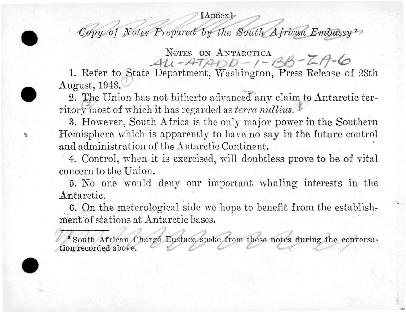 [Annex]
Copy of Notes Prepared by the South African Embassy²
NOTES ON ANTARCTICA
AU-ATADD-1-BB-ZA-6
1. Refer to State Department, Washington, Press Release of 28th
August, 1948.
2. The Union has not hitherto advanced any claim to Antarctic ter-
ritory most of which it has regarded as terra nullius.
3. However, South Africa is the only major power in the Southern
Hemisphere which is apparently to have no say in the future control
and administration of the Antarctic Continent.
4. Control, when it is exercised, will doubtless prove to be of vital
concern to the Union.
5. No one would deny our important whaling interests in the
Antarctic.
6. On the meterological side we hope to benefit from the establish-
ment of stations at Antarctic bases.
South African Chargé Eustace spoke from these notes during the conversa-
tion recorded above.